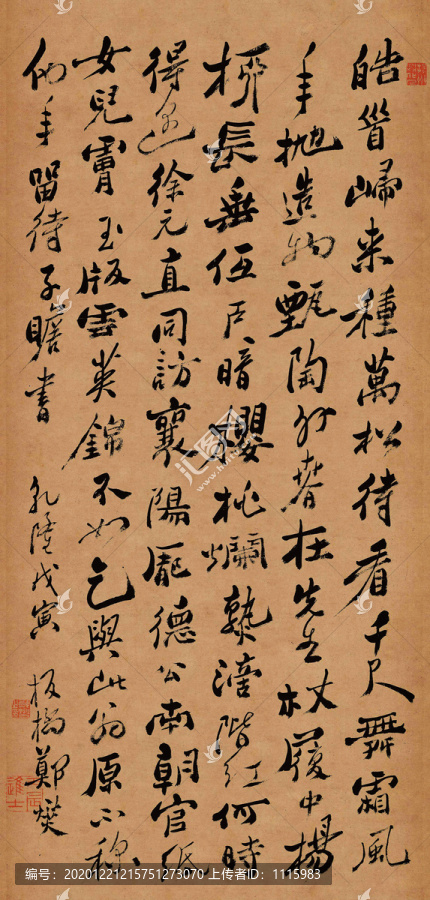 皓首歸来種萬松待看千尺舞霜風
年抛造物甄陶外春在先生杖履中楊
柳長垂低戶暗櫻桃爛熟滴階紅何時
得徐元直同訪襄陽龐德公南朝官紙
女兒膚玉版雲英錦不如乞與此翁原不稱
他年留待子瞻書 乾隆戊寅 板橋鄭燮
汇图网
编号:20201221215751273070 上传者ID:1115983